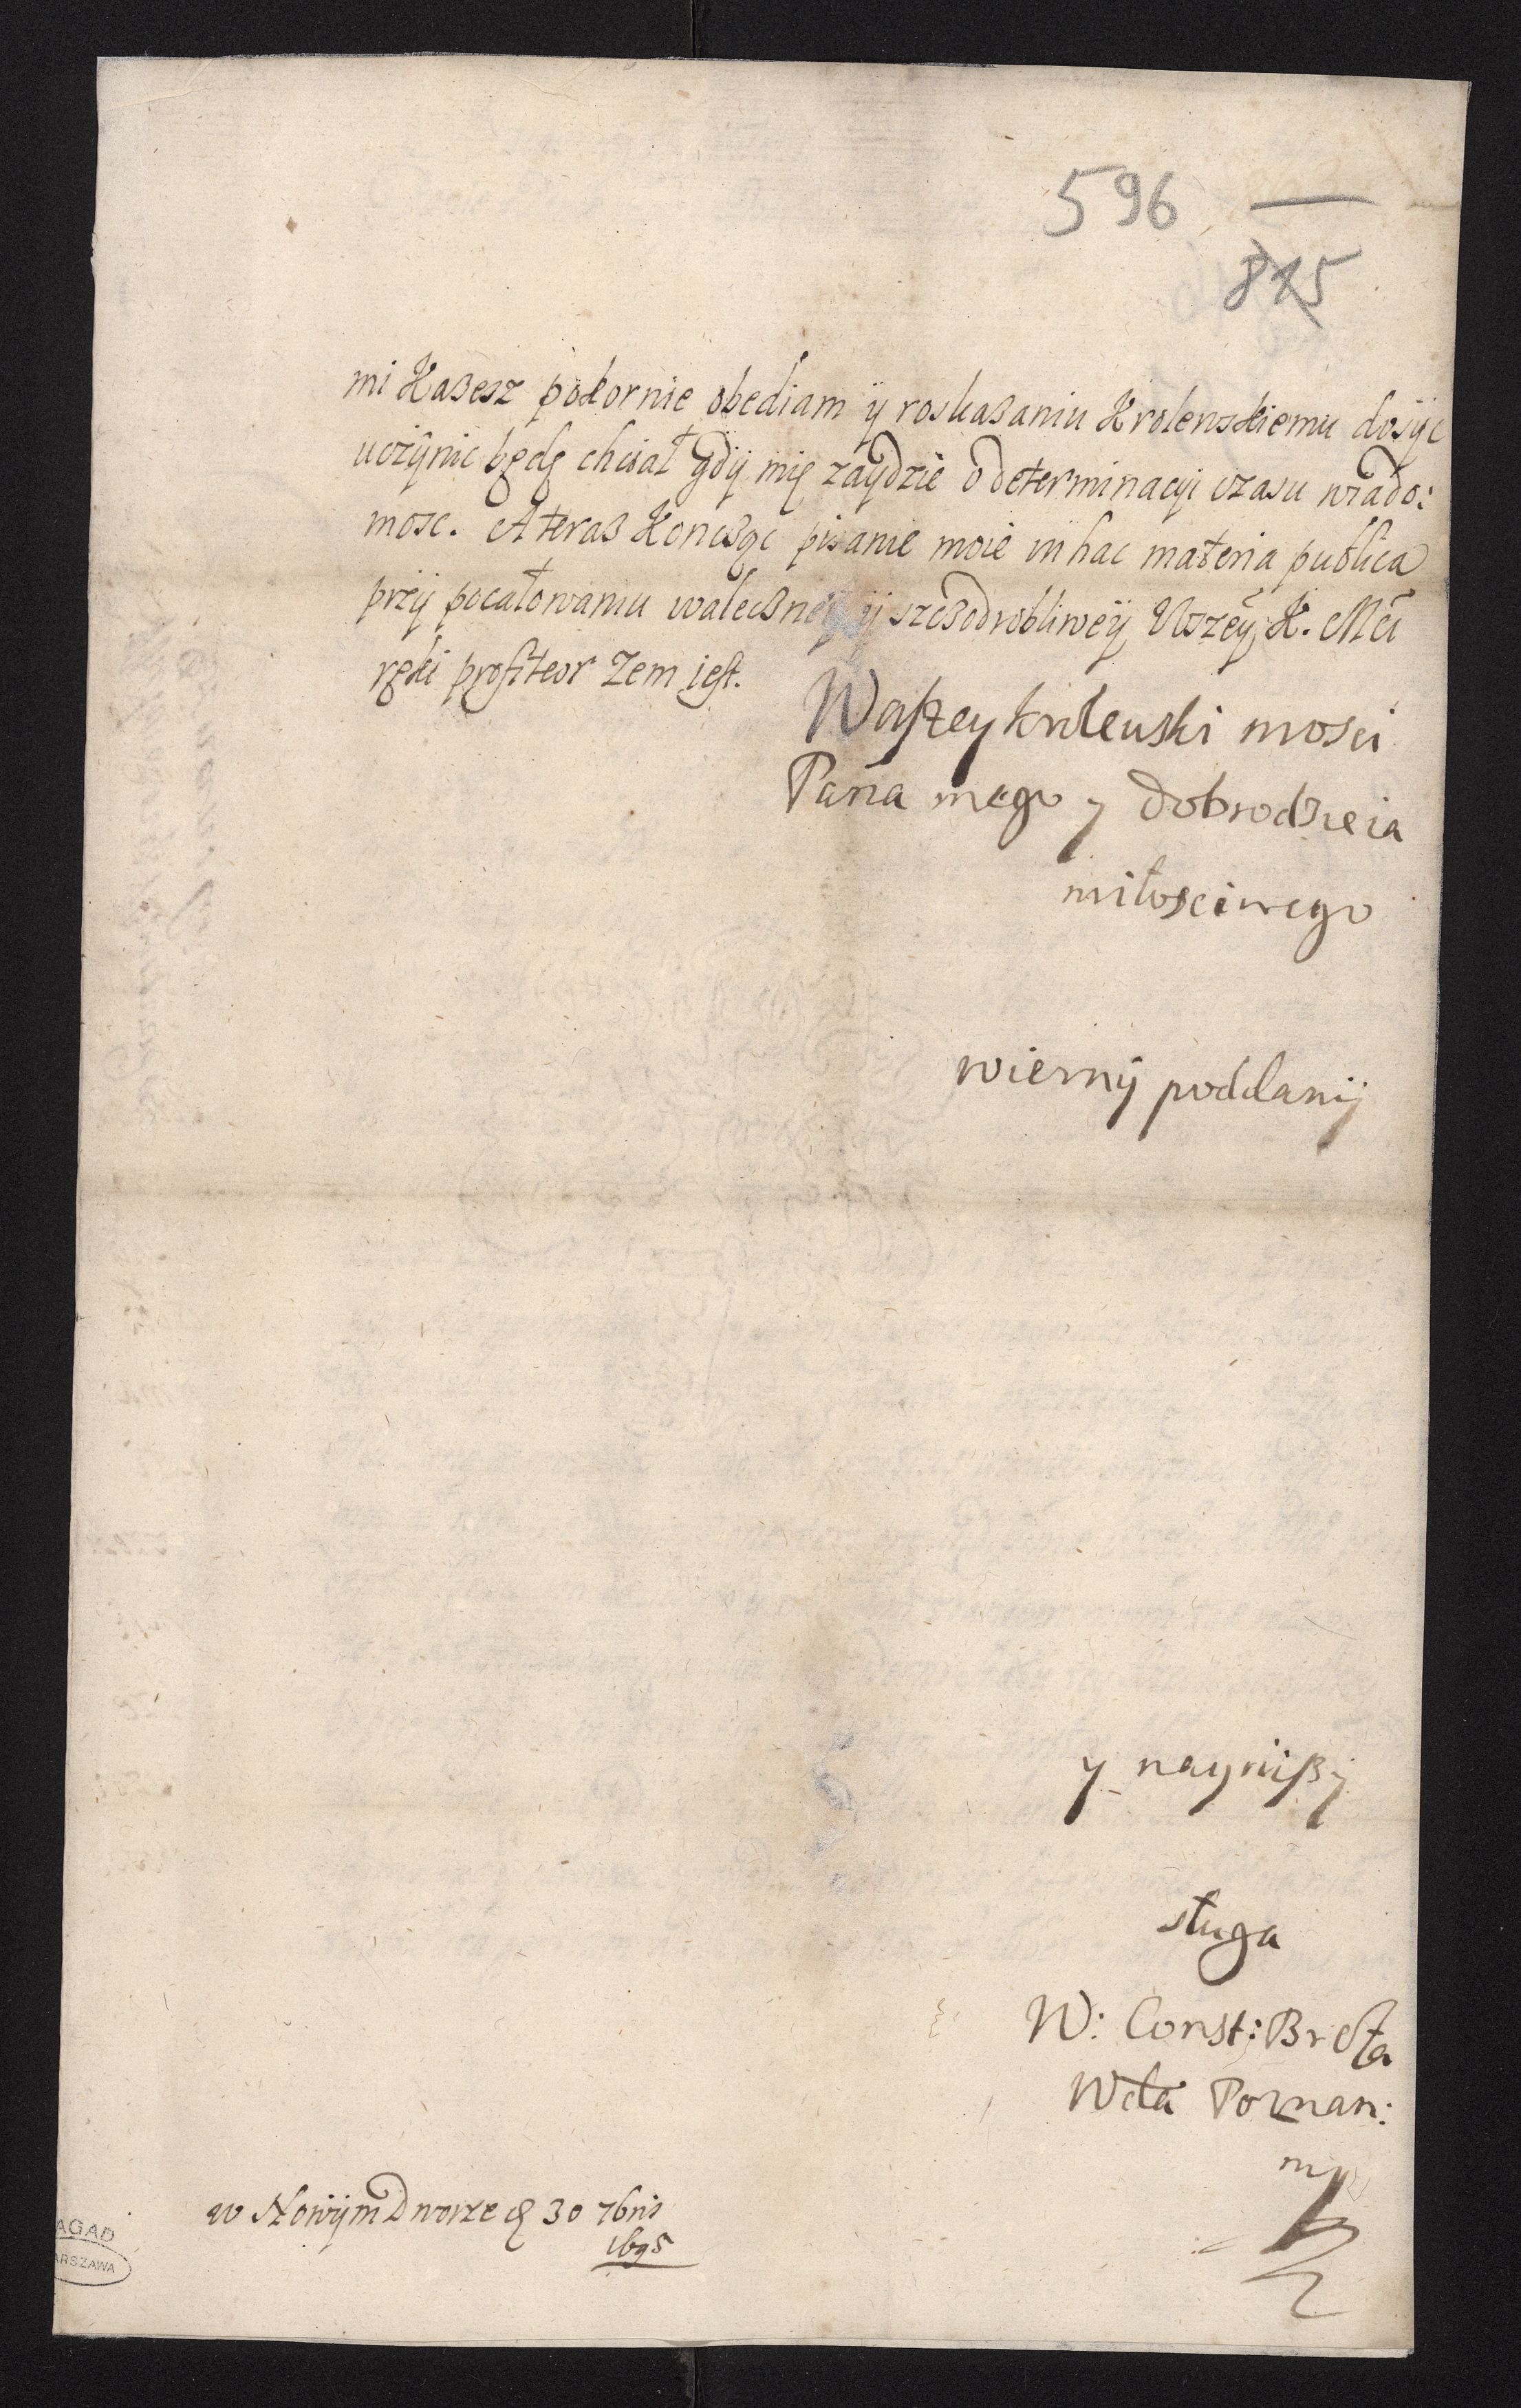 596
815
mi KaƷesz pokornie obediam ÿ roskaƷaniu Krolewskiemu dosÿc
uczÿnic będę chciał gdÿ mię zaÿdzie o determinacÿi czasu wiado:
mosc. A teraƷ KoncƷąc pisanie moie in hac materia publica
przÿ pocałowaniu walecƷneÿ ÿ szcƷodrobliweÿ Wszeÿ K. Mci
ręki profiteor Zem jest.
Waszey krolewski mosci
Pana mego y dobrodƷieia
miłosciwego
wiernÿ poddanÿ
y nayniszÿ
sługa
W: Const: Breza
Wda Poznan:
mp
w Nowÿm Dworze d 30 7bris
1695
AGAD
WARSZAWA